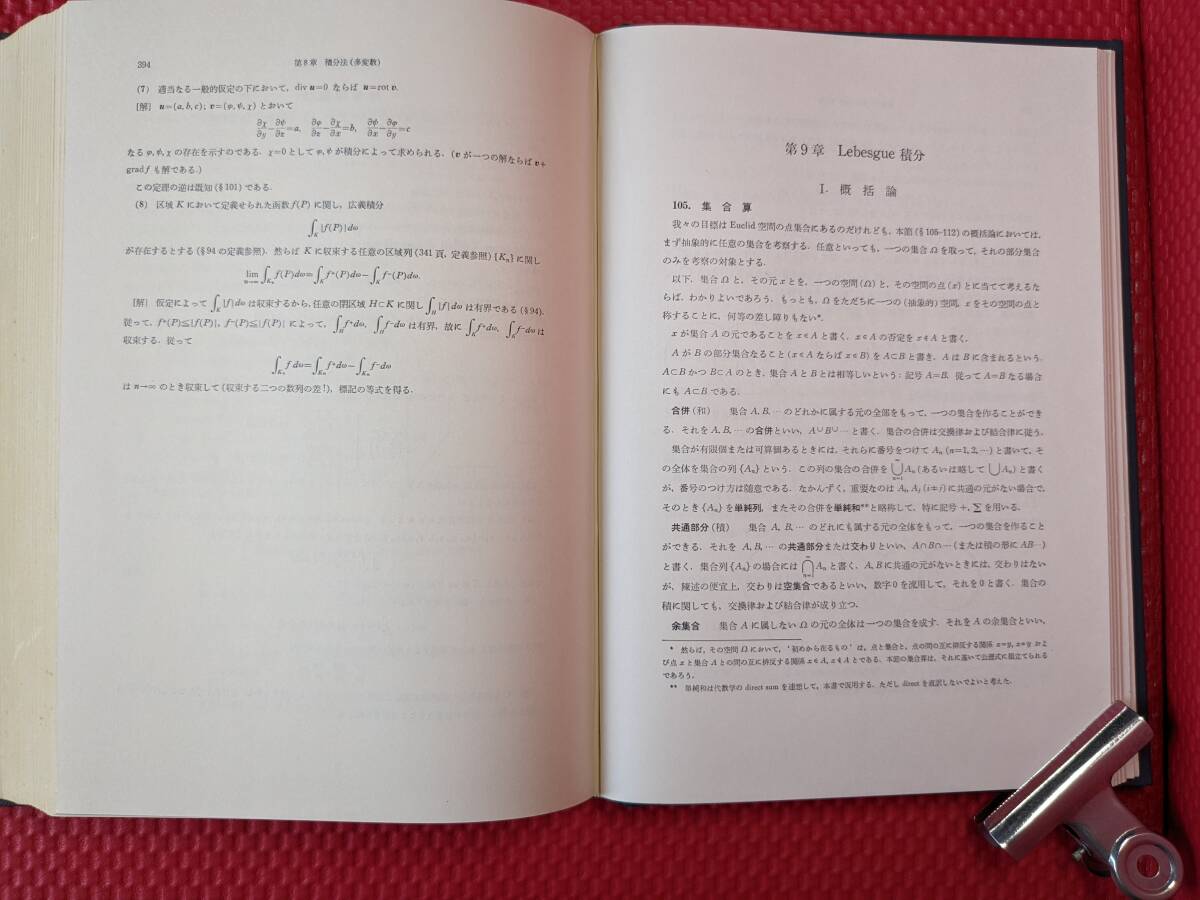 394
第8章 積分法(多変数)
(7) 適当なる一般的仮定の下において, div u=0 ならば u=rot v.
[解] u=(a, b, c); v=(φ, ψ, χ) とおいて
∂χ/∂y−∂ψ/∂z=a, ∂φ/∂z−∂χ/∂x=b, ∂ψ/∂x−∂φ/∂y=c
なる φ, ψ, χ の存在を示すのである. χ=0 として φ, ψ が積分によって求められる. (v が一つの解ならば v+
grad f も解である.)
この定理の逆は既知(§101)である.
(8) 区域 K において定義せられた函数 f(P) に関し, 広義積分
∫_K |f(P)|dω
が存在するとする(§94の定義参照). 然らば K に収束する任意の区域列(341頁, 定義参照){K_n}に関し
lim_{n→∞} ∫_{K_n} f(P)dω=∫_K f⁺(P)dω−∫_K f⁻(P)dω.
[解] 仮定によって ∫_K |f|dω は収束するから, 任意の閉区域 H⊂K に関し ∫_H |f|dω は有界である(§94).
従って, f⁺(P)≦|f(P)|, f⁻(P)≦|f(P)| によって, ∫_H f⁺dω, ∫_H f⁻dω は有界, 故に ∫_K f⁺dω, ∫_K f⁻dω は
収束する. 従って
∫_{K_n} f dω=∫_{K_n} f⁺dω−∫_{K_n} f⁻dω
は n→∞ のとき収束して(収束する二つの数列の差!), 標記の等式を得る.
第9章 Lebesgue 積分
I. 概括論
105. 集合算
我々の目標は Euclid 空間の点集合にあるのだけれども, 本節(§105-112)の概括論においては,
まず抽象的に任意の集合を考察する. 任意といっても, 一つの集合 Ω を取って, それの部分集合
のみを考察の対象とする.
以下, 集合 Ω と, その元 x とを, 一つの空間(Ω)と, その空間の点(x)とに当てて考えるな
らば, わかりよいであろう. もっとも, Ω をただちに一つの(抽象的)空間, x をその空間の点と
称することに, 何等の差し障りもない*.
x が集合 A の元であることを x∈A と書く. x∈A の否定を x∉A と書く.
A が B の部分集合なること(x∈A ならば x∈B)を A⊂B と書き, A は B に含まれるという.
A⊂B かつ B⊂A のとき, 集合 A と B とは相等しいという: 記号 A=B. 従って A=B なる場合
にも A⊂B である.
合併(和) 集合 A, B, … のどれかに属する元の全部をもって, 一つの集合を作ることができ
る. それを A, B, … の合併といい, A∪B∪… と書く. 集合の合併は交換律および結合律に従う.
集合が有限個または可算個あるときには, それらに番号をつけて A_n (n=1, 2, …) と書いて, そ
の全体を集合の列 {A_n} という. この列の集合の合併を ⋃_{n=1}^∞ A_n (あるいは略して ⋃A_n) と書く
が, 番号のつけ方は随意である. なかんずく, 重要なのは A_i, A_j (i≠j) に共通の元がない場合で,
そのとき {A_n} を単純列, またその合併を単純和**と略称して, 特に記号 +, ∑ を用いる.
共通部分(積) 集合 A, B, … のどれにも属する元の全体をもって, 一つの集合を作ること
ができる. それを A, B, … の共通部分または交わりといい, A∩B∩… (または積の形に AB…)
と書く. 集合列 {A_n} の場合には ⋂_{n=1}^∞ A_n と書く. A, B に共通の元がないときには, 交わりはない
が, 陳述の便宜上, 交わりは空集合であるといい, 数字 0 を流用して, それを 0 と書く. 集合の
積に関しても, 交換律および結合律が成り立つ.
余集合 集合 A に属しない Ω の元の全体は一つの集合を成す. それを A の余集合といい,
* 然らば, その空間 Ω において, '初めから在るもの' は, 点と集合と, 点の間の互に排反する関係 x=y, x≠y およ
び点 x と集合 A との間の互に排反する関係 x∈A, x∉A とである. 本節の集合算は, それに基いて公理式に組立てられる
であろう.
** 単純和は代数学の direct sum を連想して, 本書で仮用する. ただし direct を直訳しないでよいと考えた.